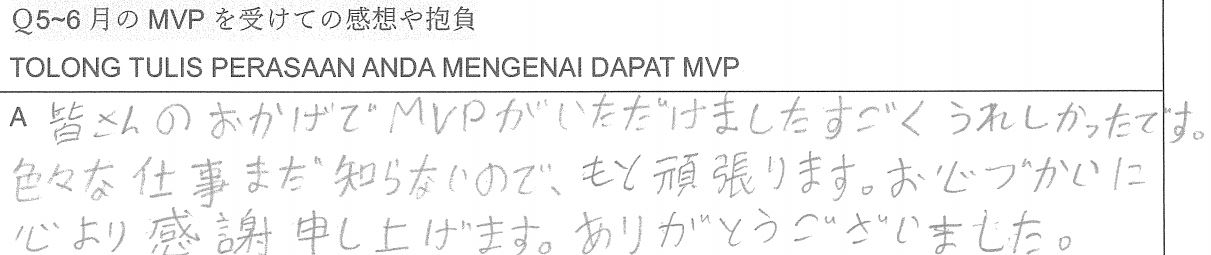 Q5~6月の MVP を受けての感想や抱負
TOLONG TULIS PERASAAN ANDA MENGENAI DAPAT MVP
A 皆さんのおかげでMVPがいただけましたすごくうれしかったてす。
色々な仕事まだ知らないので、もと頑張ります。お心づかいに
心より感謝申し上げます。ありがとうございました。